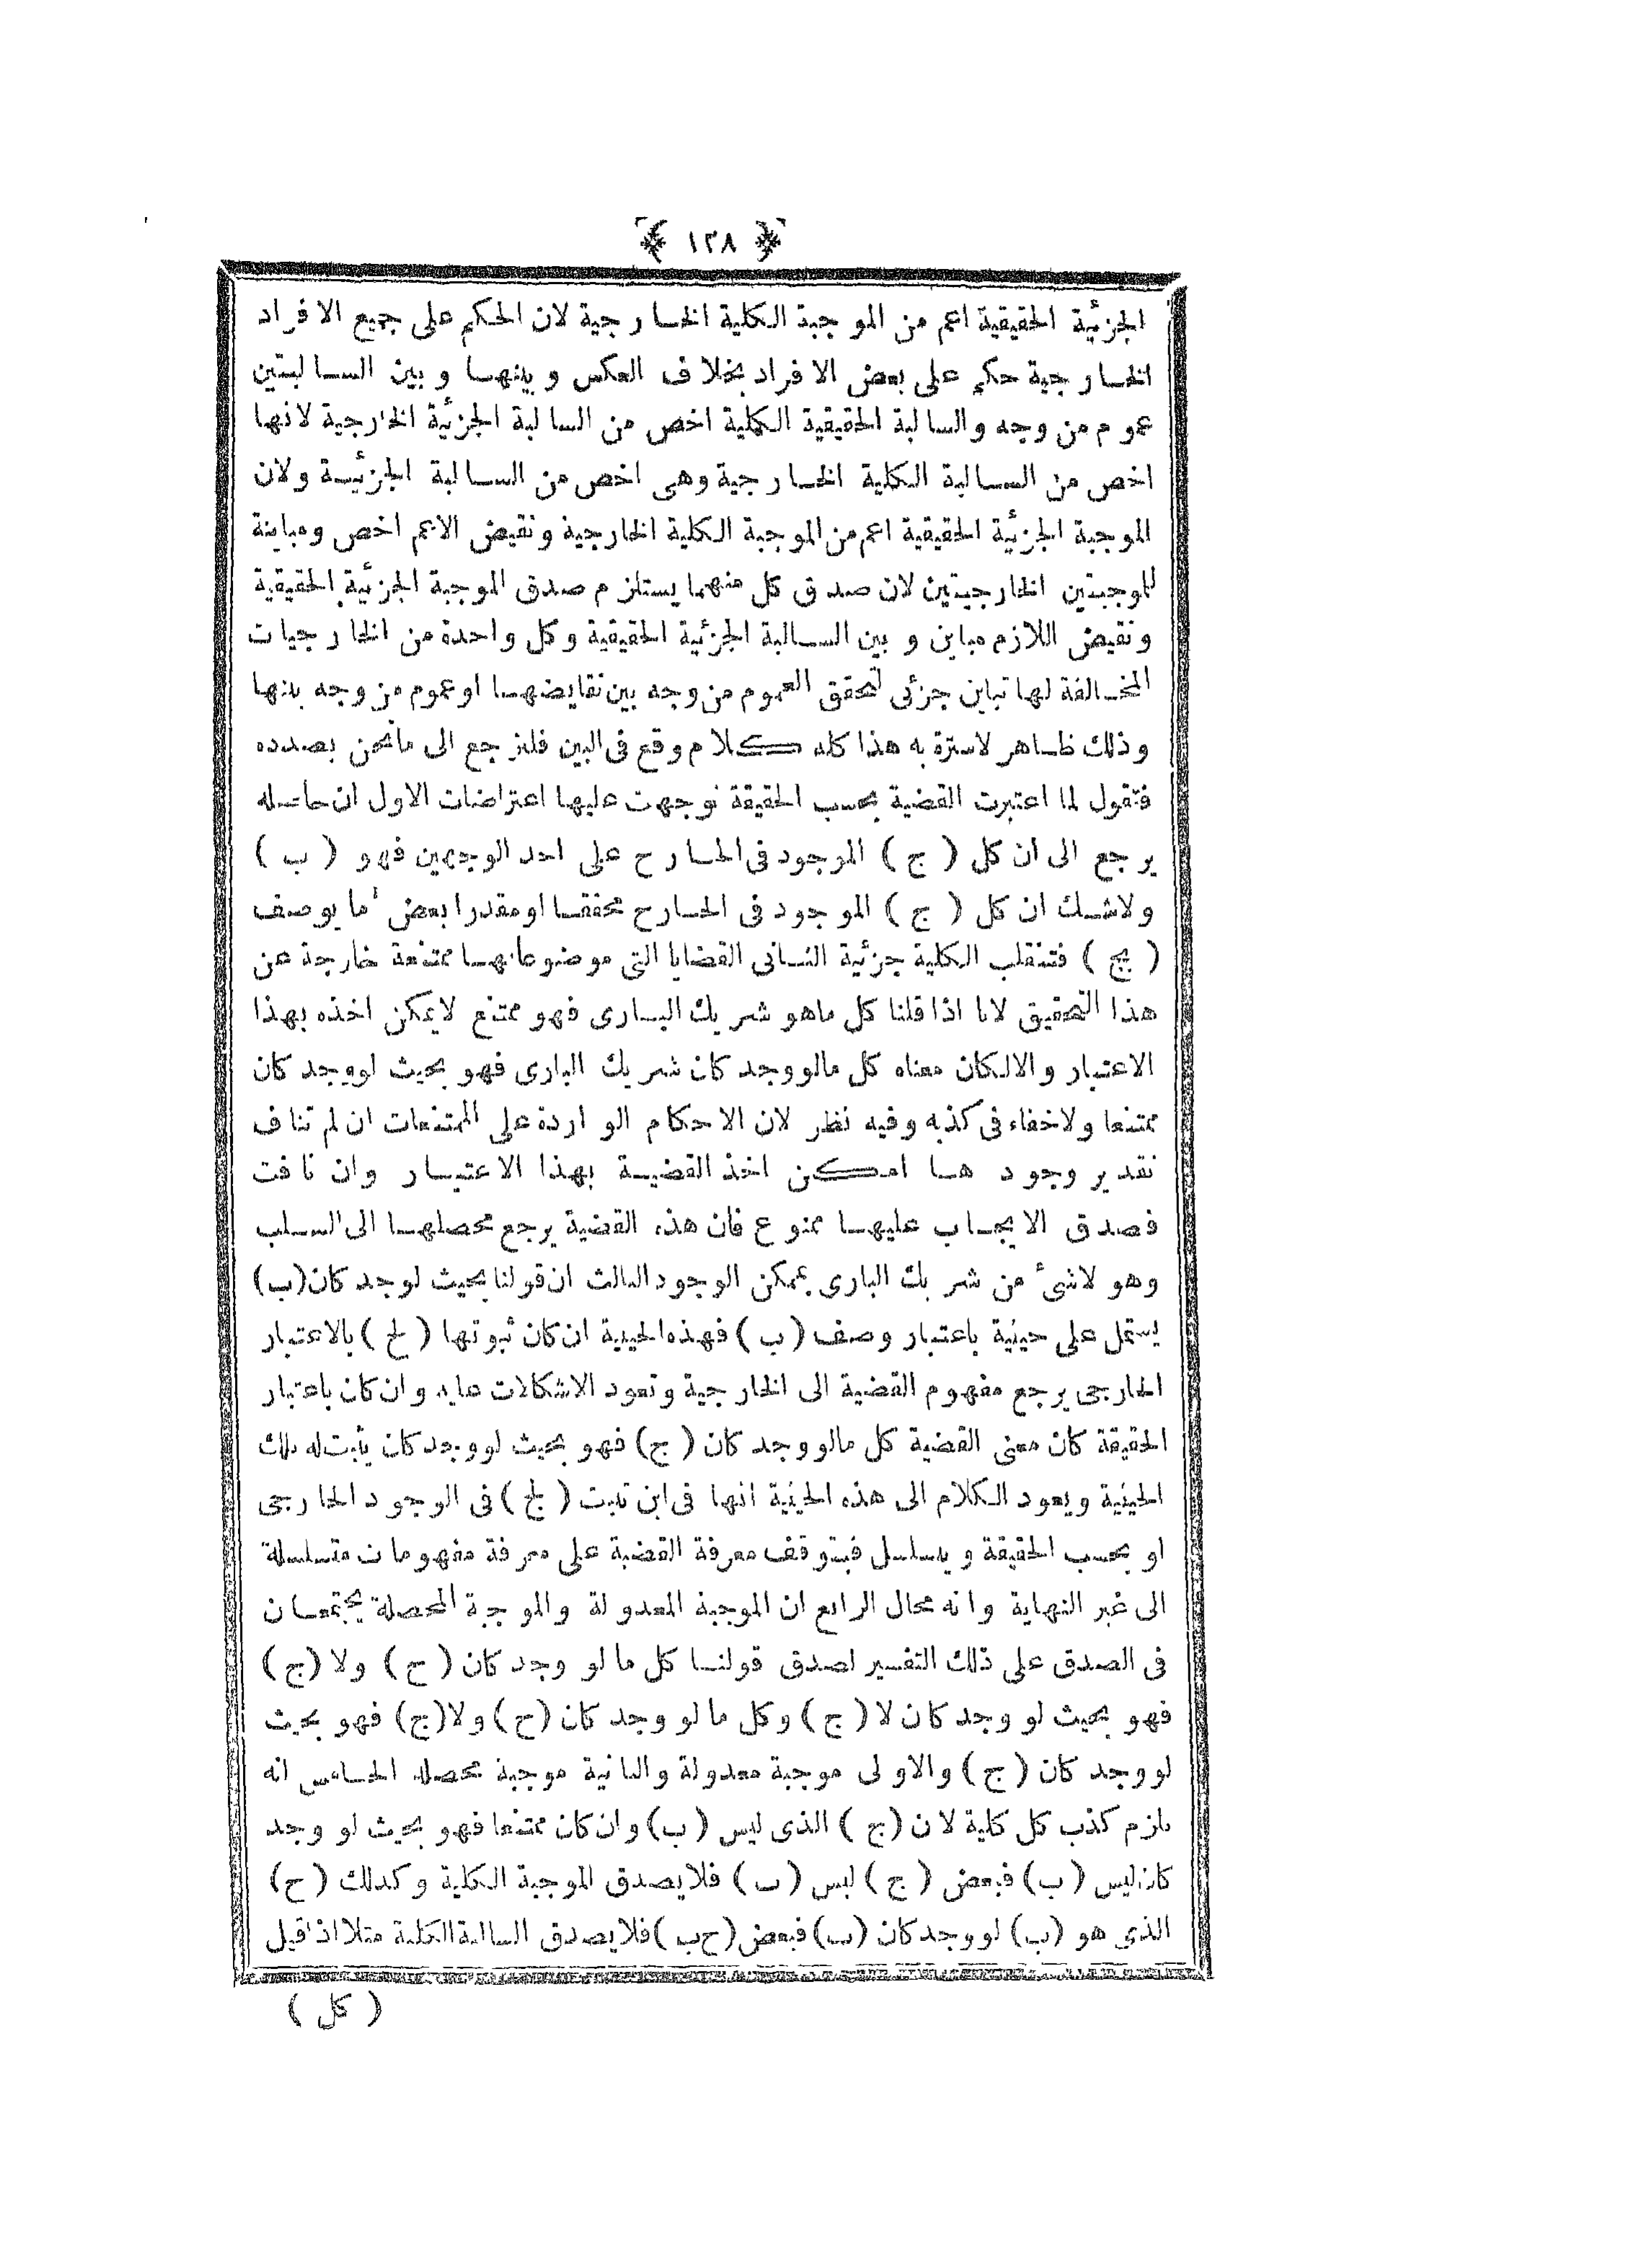 ﴿ ١٣٨ ﴾
الجزئية الحقيقية اعم من الموجبة الكلية الخارجية لان الحكم على جميع الافراد
الخارجية حكم على بعض الافراد بخلاف العكس وبينها وبين السالبتين
عموم من وجه والسالبة الحقيقية الكلية اخص من السالبة الجزئية الخارجية لانها
اخص من السالبة الكلية الخارجية وهى اخص من السالبة الجزئية ولان
الموجبة الجزئية الحقيقية اعم من الموجبة الكلية الخارجية ونقيض الاعم اخص ومباينة
للموجبتين الخارجيتين لان صدق كل منهما يستلزم صدق الموجبة الجزئية الحقيقية
ونقيض اللازم مباين وبين السالبة الجزئية الحقيقية وكل واحدة من الخارجيات
المخالفة لها تباين جزئى لتحقق العموم من وجه بين نقايضها او عموم من وجه بينها
وذلك ظاهر لاسترة به هذا كله كلام وقع فى البين فلنرجع الى مانحن بصدده
فنقول لما اعتبرت القضية بحسب الحقيقة توجهت عليها اعتراضات الاول ان حاصله
يرجع الى ان كل ( ج ) الموجود فى الخارج على احد الوجهين فهو ( ب )
ولاشك ان كل ( ج ) الموجود فى الخارج محققا او مقدرا بعض ما يوصف
( بج ) فتنقلب الكلية جزئية الثانى القضايا التى موضوعاتها ممتنعة خارجة عن
هذا التحقيق لانا اذا قلنا كل ماهو شريك البارى فهو ممتنع لايمكن اخذه بهذا
الاعتبار والا لكان معناه كل مالو وجد كان شريك البارى فهو بحيث لووجد كان
ممتنعا ولاخفاء فى كذبه وفيه نظر لان الاحكام الواردة على الممتنعات ان لم تناف
تقدير وجودها امكن اخذ القضية بهذا الاعتبار وان نافت
فصدق الايجاب عليها ممنوع فان هذه القضية يرجع محصلها الى السلب
وهو لاشئ من شريك البارى بممكن الوجود الثالث ان قولنا بحيث لوجد كان (ب)
يشتمل على حيثية باعتبار وصف ( ب ) فهذه الحيثية ان كان ثبوتها ( لج ) بالاعتبار
الخارجى يرجع مفهوم القضية الى الخارجية وتعود الاشكالات عليه وان كان باعتبار
الحقيقة كان معنى القضية كل مالو وجد كان ( ج ) فهو بحيث لووجد كان يثبت له تلك
الحيثية ويعود الكلام الى هذه الحيثية انها فى اين تثبت ( لج ) فى الوجود الخارجى
او بحسب الحقيقة ويتسلسل فيتوقف معرفة القضية على معرفة مفهومات متسلسلة
الى غير النهاية وانه محال الرابع ان الموجبة المعدولة والموجبة المحصلة يجتمعان
فى الصدق على ذلك التفسير لصدق قولنا كل مالو وجد كان ( ج ) ولا ( ج )
فهو بحيث لو وجد كان لا ( ج ) وكل مالو وجد كان ( ج ) ولا ( ج ) فهو بحيث
لو وجد كان ( ج ) والاولى موجبة معدولة والثانية موجبة محصلة الخامس انه
يلزم كذب كل كلية لان ( ج ) الذى ليس ( ب ) وان كان ممتنعا فهو بحيث لو وجد
كان ليس ( ب ) فبعض ( ج ) ليس ( ب ) فلا يصدق الموجبة الكلية وكذلك ( ج )
الذى هو ( ب ) لو وجد كان ( ب ) فبعض ( ج ب ) فلا يصدق السالبة الكلية مثلا اذا قيل
( كل )